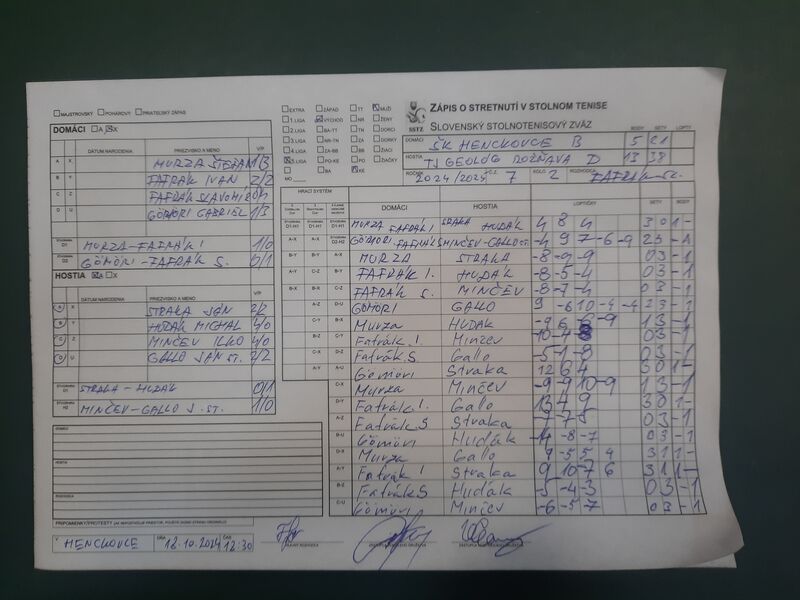 MAJSTROVSKÝ POHÁROVÝ PRIATEĽSKÝ ZÁPAS
DOMÁCI A X
DÁTUM NARODENIA PRIEZVISKO A MENO V/P
A X MURZA ŠTEFAN 1/3
B Y FAFRÁK IVAN 2/2
C Z FAFRÁK SLAVOMÍR
D U GÖMÖRI GABRIEL 1/3
D1 MURZA-FAFRÁK I 1/0
D2 GÖMÖRI-FAFRÁK S. 0/1
HOSTIA A X
DÁTUM NARODENIA PRIEZVISKO A MENO V/P
STRAKA JÁN 2/2
HUDÁK MICHAL 4/0
MINČEV ILKO 4/0
GALLO JÁN ST. 2/2
STRAKA-HUDÁK 0/1
MINČEV-GALLO J. ST. 1/0
DOMÁCI
HOSTIA
ROZHODCA
PRIPOMIENKY/PROTESTY
V HENCKOVCE DŇA 18.10.2024 ČAS 18:30
EXTRA ZÁPAD TT MUŽI
1. LIGA VÝCHOD NR ŽENY
2. LIGA BA-TT TN DORCI
3. LIGA NR-TN ZA DORKY
4. LIGA ZA-BB BB ŽIACI
5. LIGA PO-KE PO ŽIAČKY
BA KE
MO
SSTZ
ZÁPIS O STRETNUTÍ V STOLNOM TENISE
SLOVENSKÝ STOLNOTENISOVÝ ZVÄZ
BODY SETY LOPTY
DOMÁCI ŠK HENCKOVCE B 5 21
HOSTIA TJ GEOLÓG ROŽŇAVA D 13 38
ROČNÍK 2024/2025 Č.Z. 7 KOLO 2 ROZHODCA FAFRÁK ST.
HRACÍ SYSTÉM
DOMÁCI HOSTIA LOPTIČKY SETY BODY
MURZA FAFRÁK I STRAKA HUDÁK 4 8 4 3 0 1 -
GÖMÖRI FAFRÁK S MINČEV-GALLO ST. -4 9 7 -6 -9 2 3 - 1
MURZA STRAKA -8 -9 -9 0 3 - 1
FAFRÁK I. HUDÁK -8 -5 -4 0 3 - 1
FAFRÁK S. MINČEV -8 -7 -4 0 3 - 1
GÖMÖRI GALLO 9 -6 10 -4 -4 2 3 - 1
Murza HUDÁK -9 6 -8 -9 1 3 - 1
Fafrák I. Minčev -10 -4 -8 0 3 - 1
Fafrák S Gallo -5 -1 -8 0 3 - 1
Gömöri Straka 12 6 4 3 0 1 -
Murza Minčev -9 -9 10 -9 1 3 - 1
Fafrák I. Gallo 13 4 9 3 0 1 -
Fafrák S Straka -7 -7 -8 0 3 - 1
Gömöri Hudák -14 -8 -7 0 3 - 1
Murza Gallo -9 5 5 4 3 1 1 -
Fafrák I Straka 9 10 -7 6 3 1 1 -
Fafrák S Hudák -5 -4 -3 0 3 - 1
Gömöri Minčev -6 -5 -7 0 3 - 1